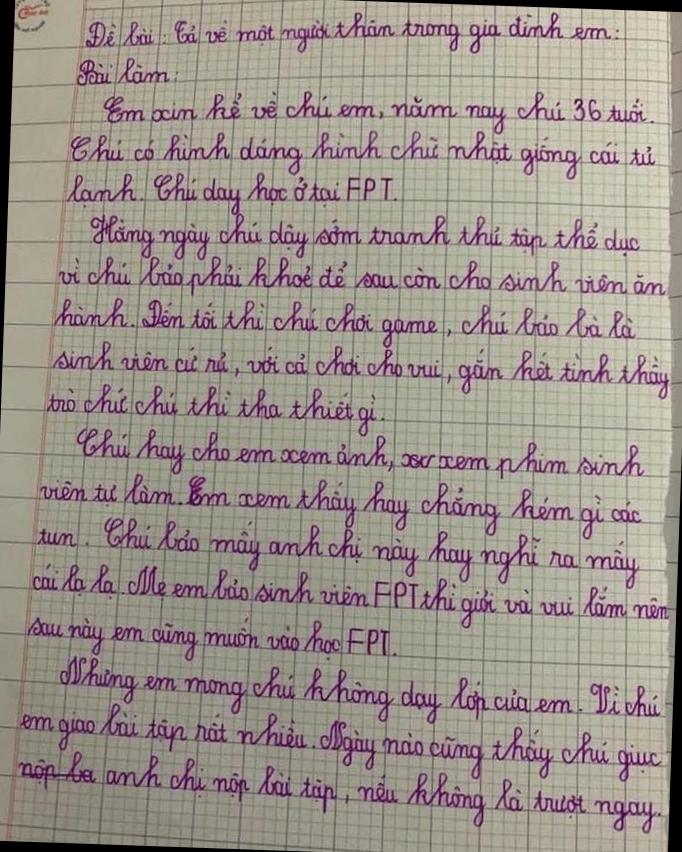 Đề bài: Tả về một người thân trong gia đình em:
Bài làm:
Em xin kể về chú em, năm nay chú 36 tuổi.
Chú có hình dáng hình chữ nhật giống cái tủ
lạnh. Chú dạy học ở tại FPT.
Hằng ngày chú dậy sớm tranh thủ tập thể dục
vì chú bảo phải khoẻ để sau còn cho sinh viên ăn
hành. Đến tối thì chú chơi game, chú bảo là là
sinh viên cứ rủ, với cả chơi cho vui, gắn kết tình thầy
trò chứ chú thì tha thiết gì.
Chú hay cho em xem ảnh, xem phim sinh
viên tự làm. Em xem thấy hay chẳng kém gì các
tun. Chú bảo mấy anh chị này hay nghĩ ra mấy
cái lạ lạ. Mẹ em bảo sinh viên FPT thì giỏi và vui lắm nên
sau này em cũng muốn vào học FPT.
Nhưng em mong chú không dạy lớp của em. Vì chú
em giao bài tập rất nhiều. Ngày nào cũng thấy chú giục
anh chị nộp bài tập, nếu không là trượt ngay.